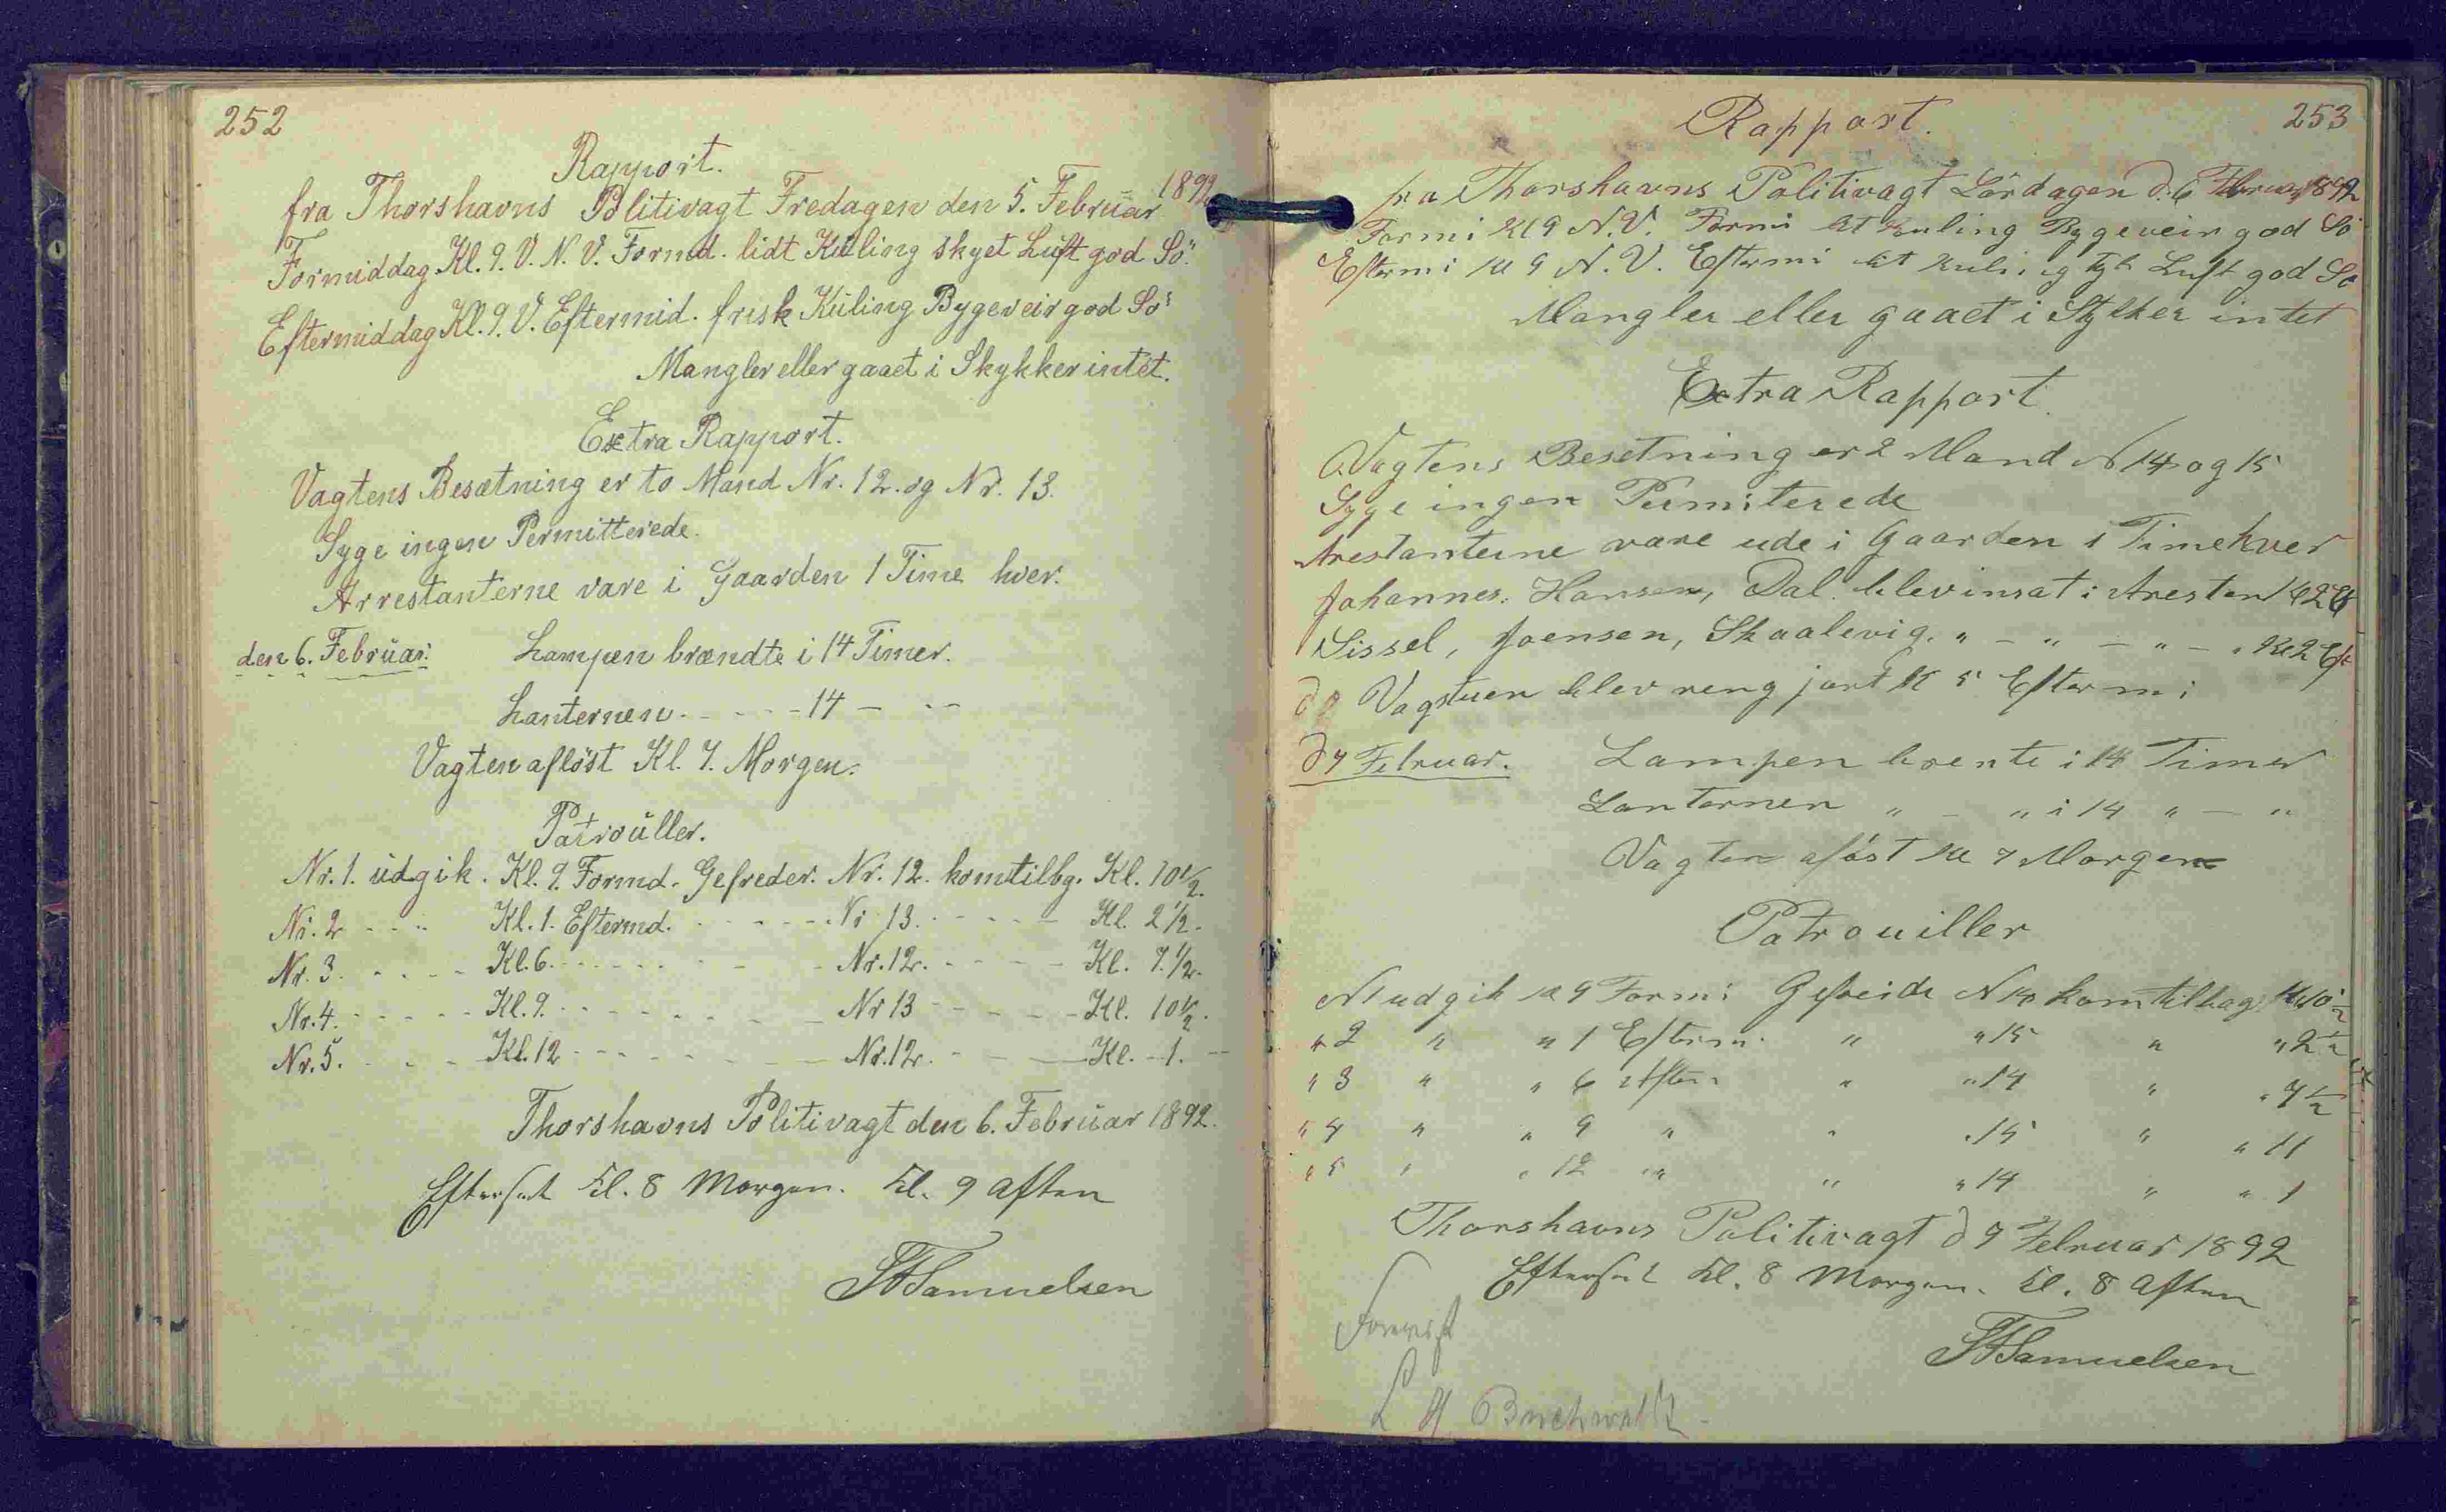 252
Rapport.
fra Thorshavns Politivagt Fredagen den 5. Februar 1892
Formiddag Kl. 9. V. N. V. Formd. lidt Kuling skyet Luft god Sö.
Eftermiddag Kl. 9. V. Eftermid. frisk Kuling Bygeveir god Sö
Mangler eller gaaet i Skykker intet.
Extra Rapport.
Vagtens Besætning er to Mand Nr. 12. og Nr. 13.
Syge ingen Permitterede.
Arrestanterne vare i Gaarden 1 Time hver.
den 6. Februar. Lampen brændte i 14 Timer.
Lanternen - - - - 14 - - -
Vagten aflöst Kl. 7. Morgen.
Patrouller.
Nr. 1. udgik. Kl. 9. Formd. Gefreder. Nr. 12. komtilbg. Kl. 10 1/2.
Nr. 2 - - - Kl. 1. Eftermd. - - - - Nr 13. - - - - Kl. 2 1/2.
Nr. 3. - - - - Kl. 6. - - - - - - Nr. 12. - - - - Kl. 7. 1/2.
Nr. 4. - - - - Kl. 9. - - - - - - Nr 13 - - - - Kl. 10 1/2.
Nr. 5. - - - Kl. 12 - - - - - - Nr. 12. - - - Kl. - 1. -
Thorshavns Politivagt den 6. Februar 1892.
Efterset Kl. 8 Morgen. Kl. 9 Aften
Samuelsen
253
Rapport.
fra Thorshavns Politivagt Lördagen d. 6 Februar 1892
Formi Kl 9 N. V. Formi lit Kuling Bygeveir god Sö
Eftermi Kl 9 N. V. Eftermi lit Kuling Luft god Sö
Mangler eller gaaet i Stykker intet
Extra Rapport.
Vagtens Besetning er 2 Mand N 14 og 15
Syge ingen Permiterede
Arestanterne vare ude i Gaarden 1 Time hver
Johannes. Hansen, Dal. blev insat i Aresten Kl 2 Ef
Sissel, Joensen, Skaalevig. " - " - " - " Kl 2 Ef
Vagstuen blev rengjort Kl 5 Eftermi
d 7 Februar. Lampen brente i 14 Timer
Lanternen " - " i 14 " - "
Vagten aföst Kl 7 Morgen
Patrouiller
N 1 udgik Kl 9 Formi Gefreide N komtilbag Kl 10 1/2
" 2 " " 1 Efterm. " " 15 " " 2 1/2
" 3 " " 6 Aften " " 14 " " 7 1/2
" 4 " " 9 " " " 15 " " 11
" 5 " " 12 " " " 14 " " 1
Thorshavns Politivagt d 7 Februar 1892
Efterset Kl. 8 Morgen. Kl. 8 Aften
Samuelsen
Forevist
L H Buchwaldt